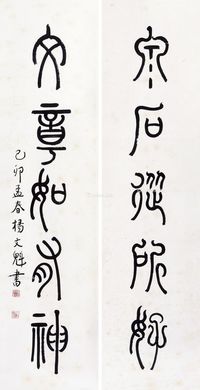 泉石從所好
文章如有神
己卯孟春楊文魁書